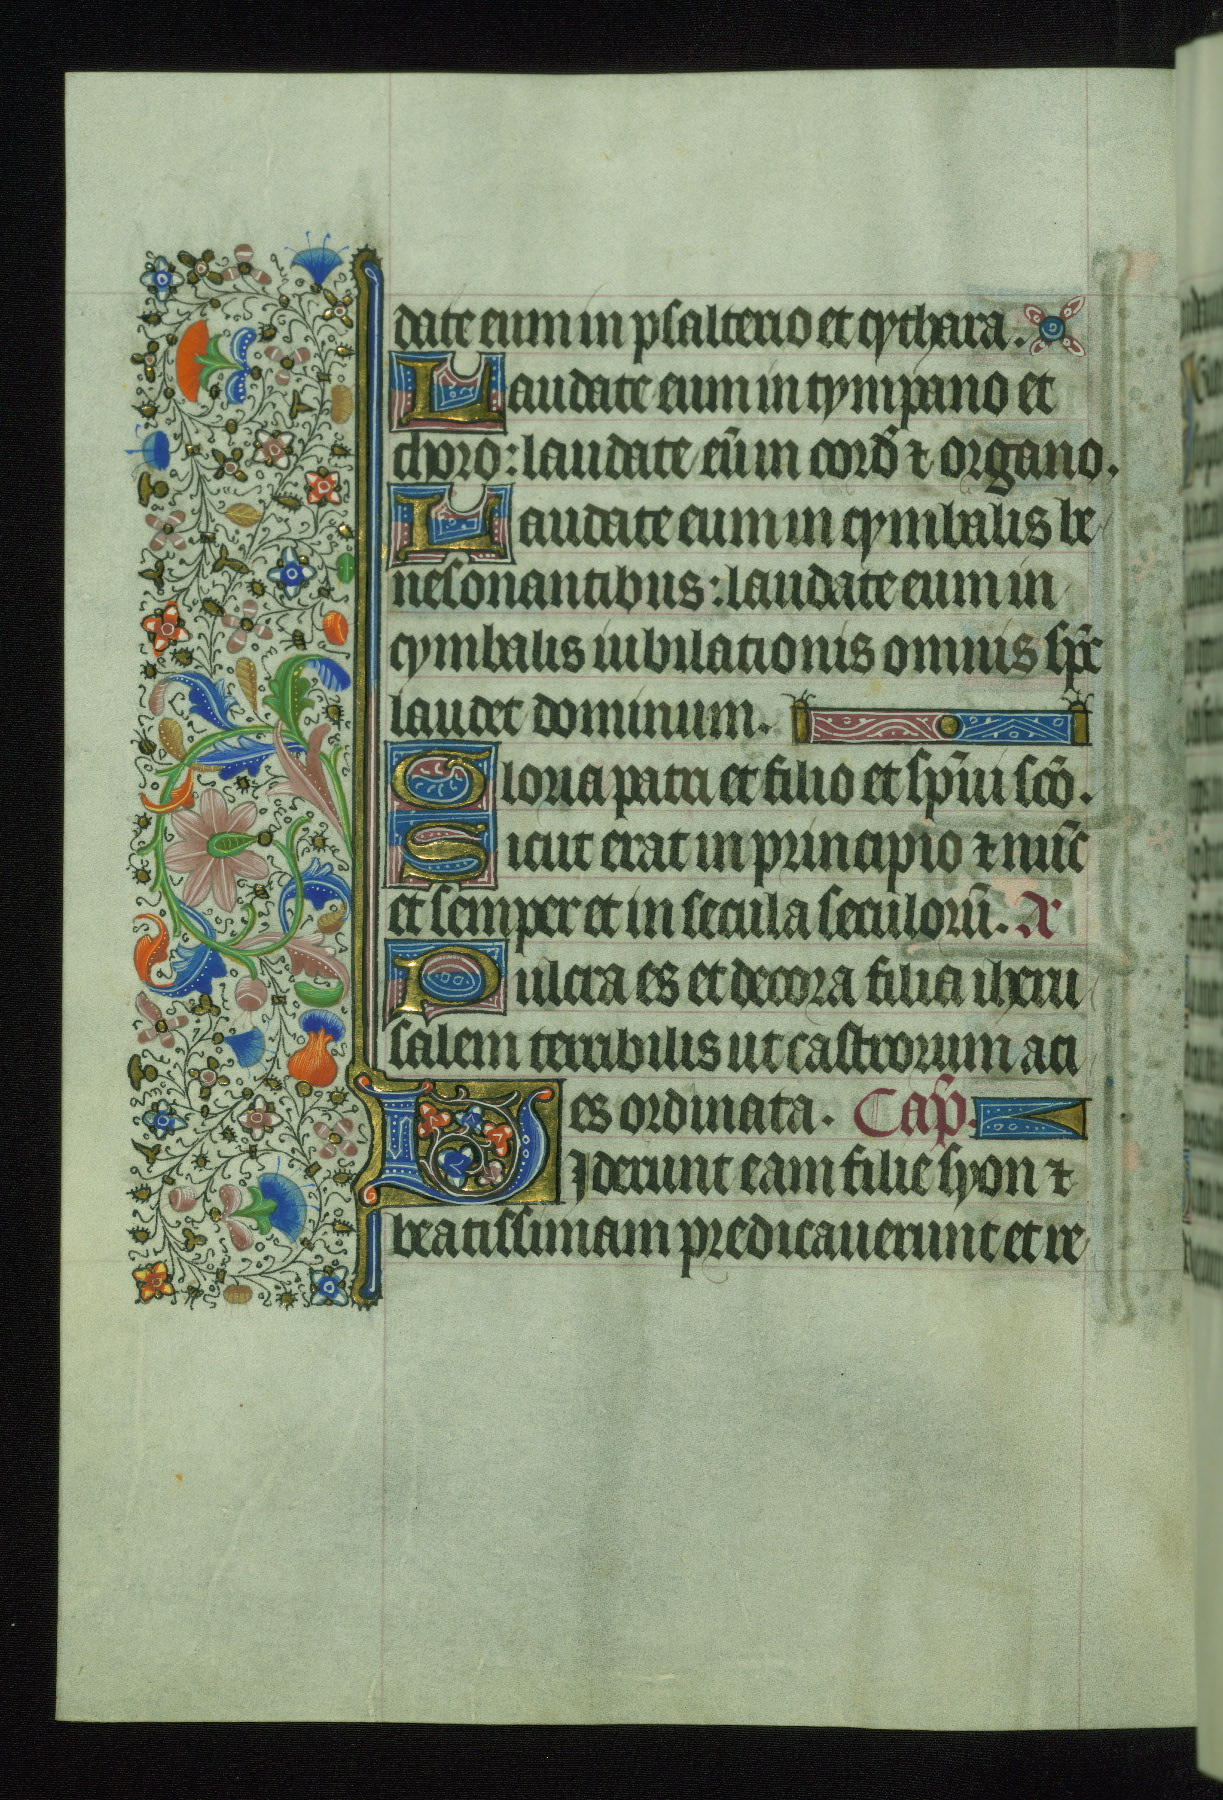 date eum in psalterio et cythara.
Laudate eum in tympano et
choro: laudate eū in cord̄ ⁊ organo.
Laudate eum in cymbalis be
nesonantibus: laudate eum in
cymbalis iubilationis omnis sp̄c
laudet dominum.
Gloria patri et filio et sp̄iui sc̄o.
Sicut erat in principio ⁊ nūc
et semper et in secula seculorū. A
Pulcra es et decora filia iheru
salem terribilis ut castrorum aci
es ordinata. Cap̄.
Viderunt eam filie syon ⁊
beatissimam predicauerunt et re